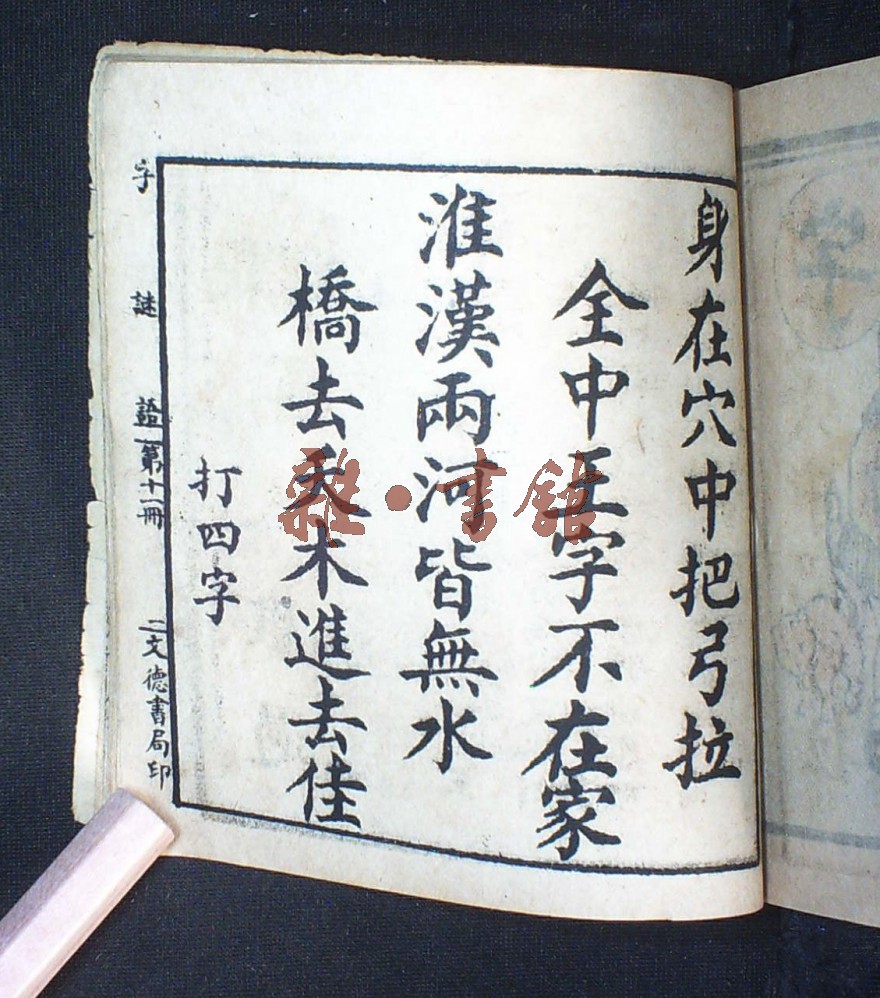 身在穴中把弓拉
全中王字不在家
淮漢兩河皆無水
橋去夭木進去佳
打四字
字謎 第十一冊 文德書局印
雜·书館